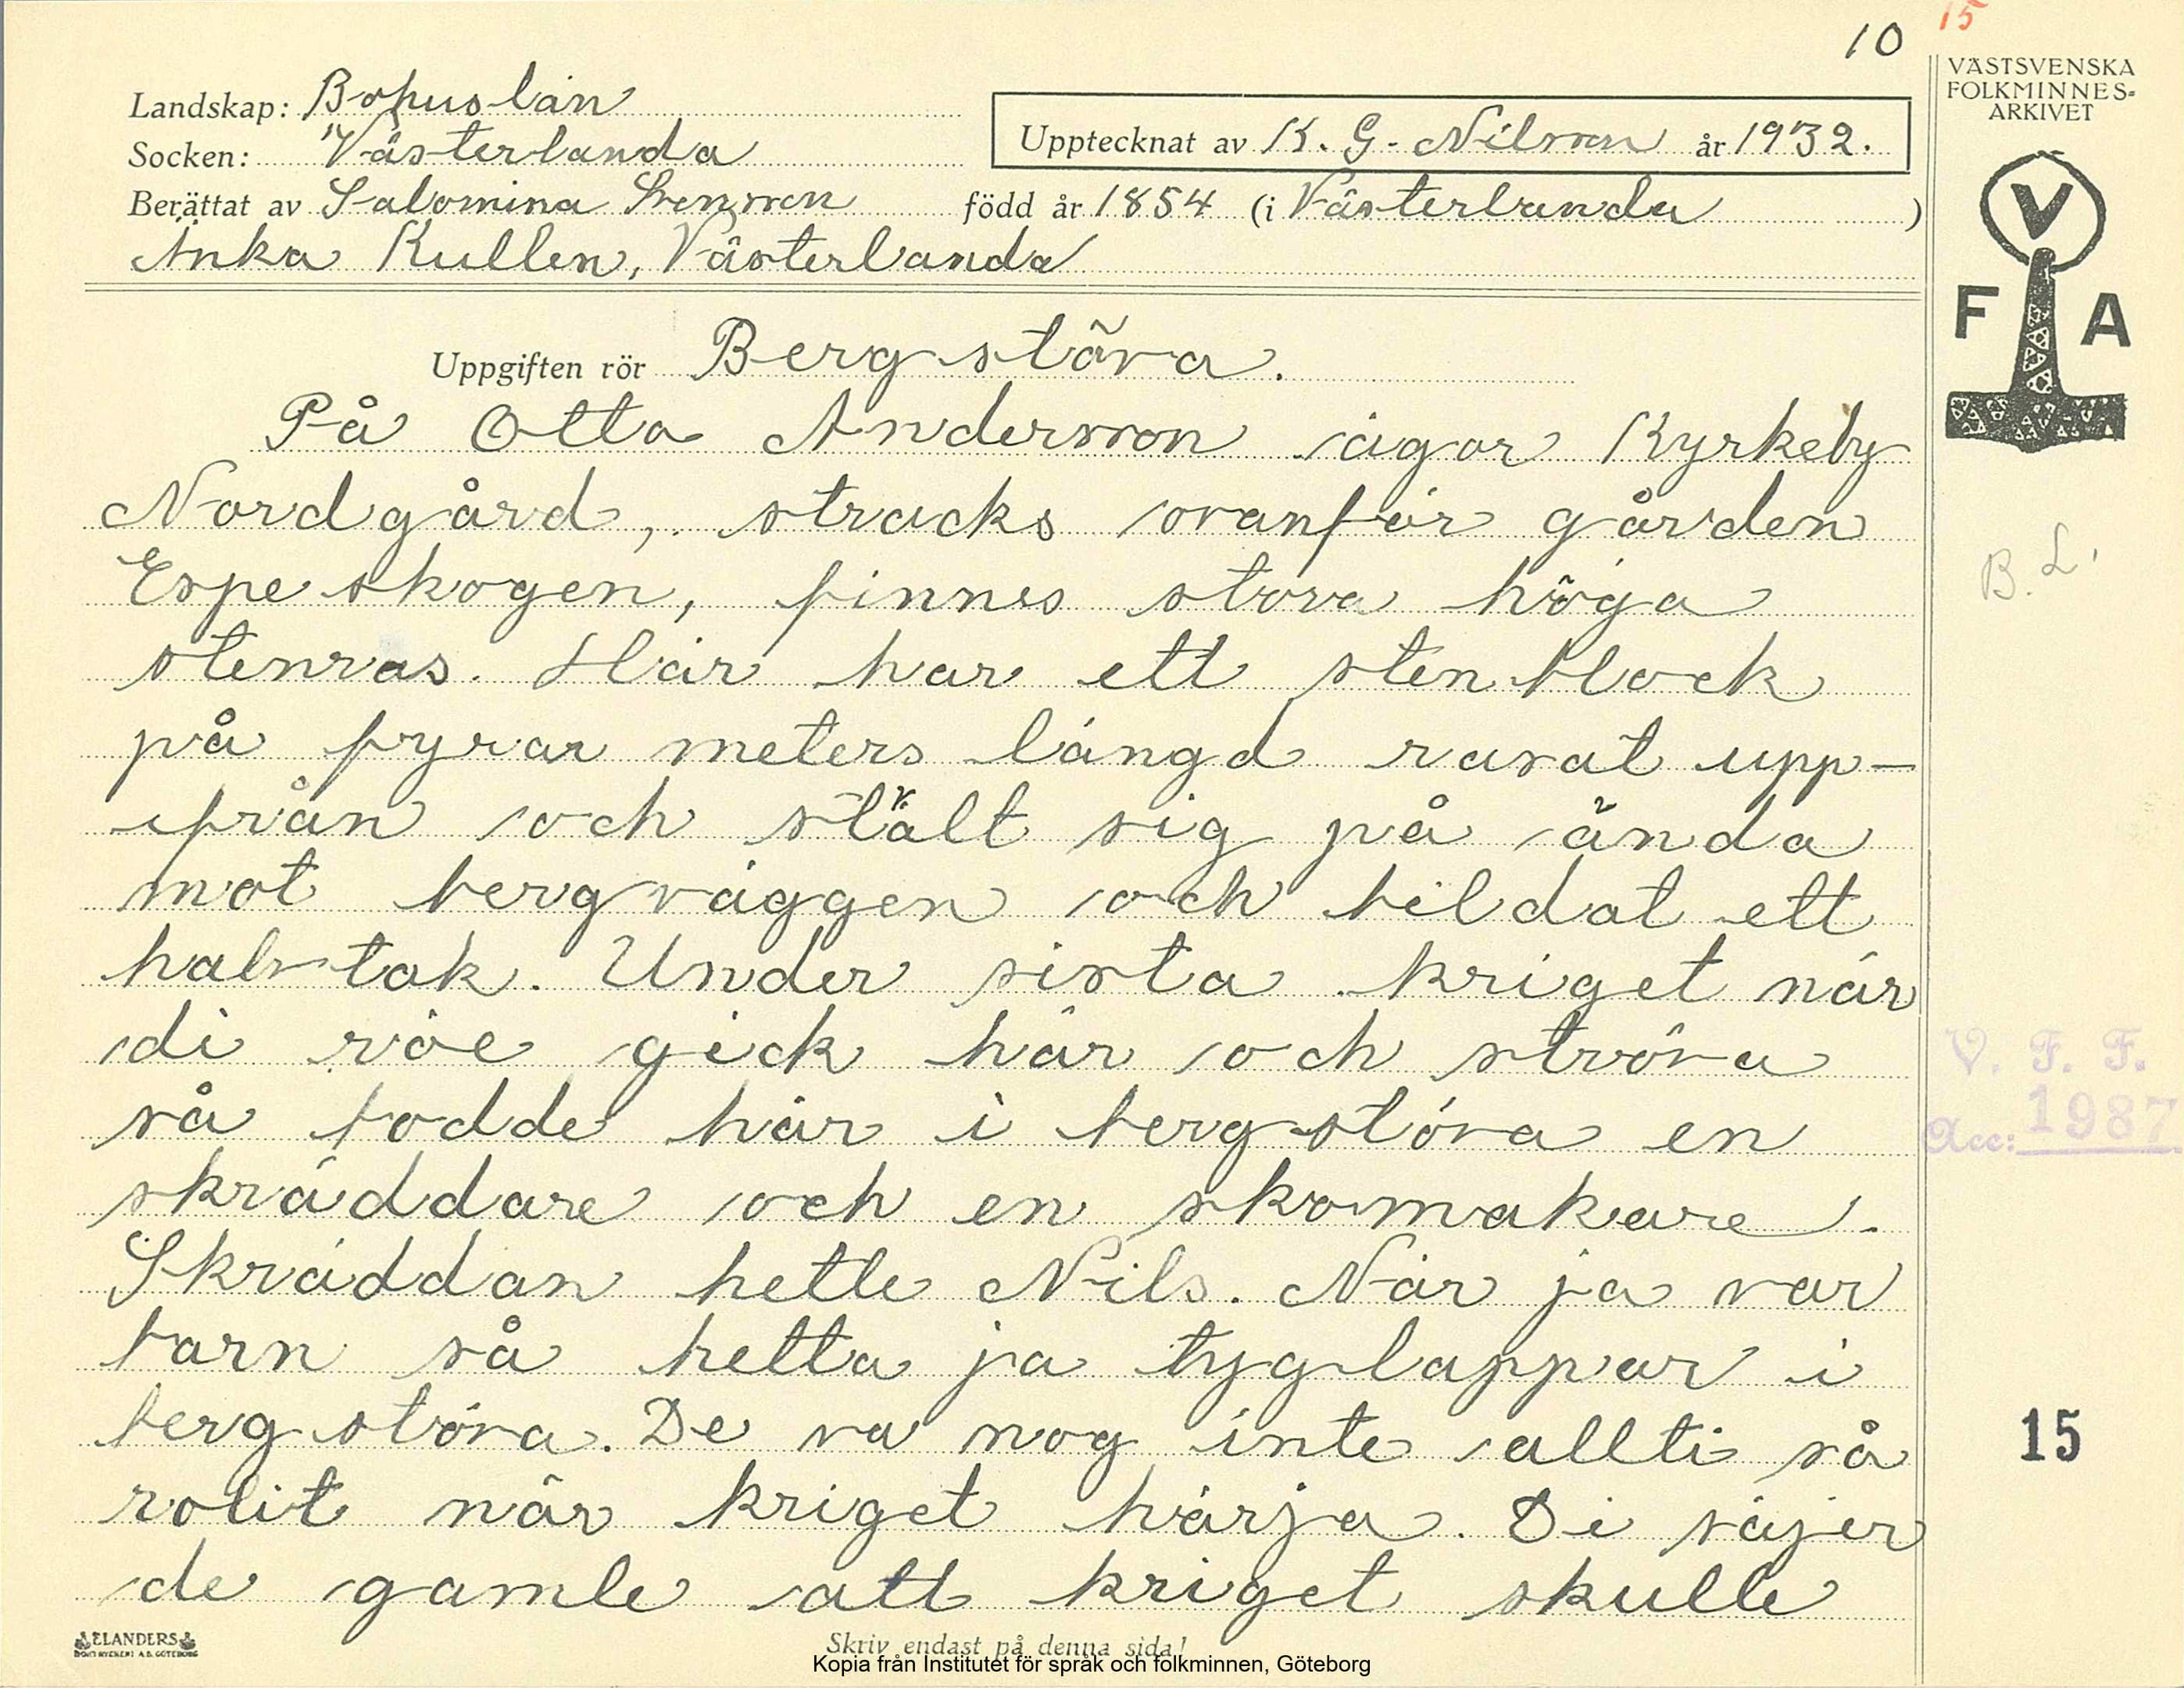 10 15
VÄSTSVENSKA
FOLKMINNES-
ARKIVET
Landskap: Bohuslän
Upptecknat av K. G. Nilsson år 1932.
Socken: Västerlanda
Berättat av Salomina Svensson född år 1854 (i Västerlanda )
Änka Kullen, Västerlanda
V
F A
Uppgiften rör Bergstöva.
På Otto Andersson ägor Kyrkeby
Nordgård, stracks ovanför gården
Espeskogen, finnes stora höga
stenras. Här har ett stenblock
på fyrar meters längd rasat upp-
ifrån och stält sig på ända
mot bergväggen och bildat ett
halvtak. Under sista kriget när
di röe gick här och ströva
så bodde här i bergstöva en
skräddare och en skomakare.
Skräddan hette Nils. När ja var
barn så hetta ja tyglappar i
bergstöva. De va nog inte allti så
rolit när kriget härja. Di säjer
de gamle att kriget skulle
B. L.
V. F. F.
Acc: 1987
15
ELANDERS
BOKTRYCKERI A.B. GÖTEBORG
Skriv endast på denna sida!
Kopia från Institutet för språk och folkminnen, Göteborg